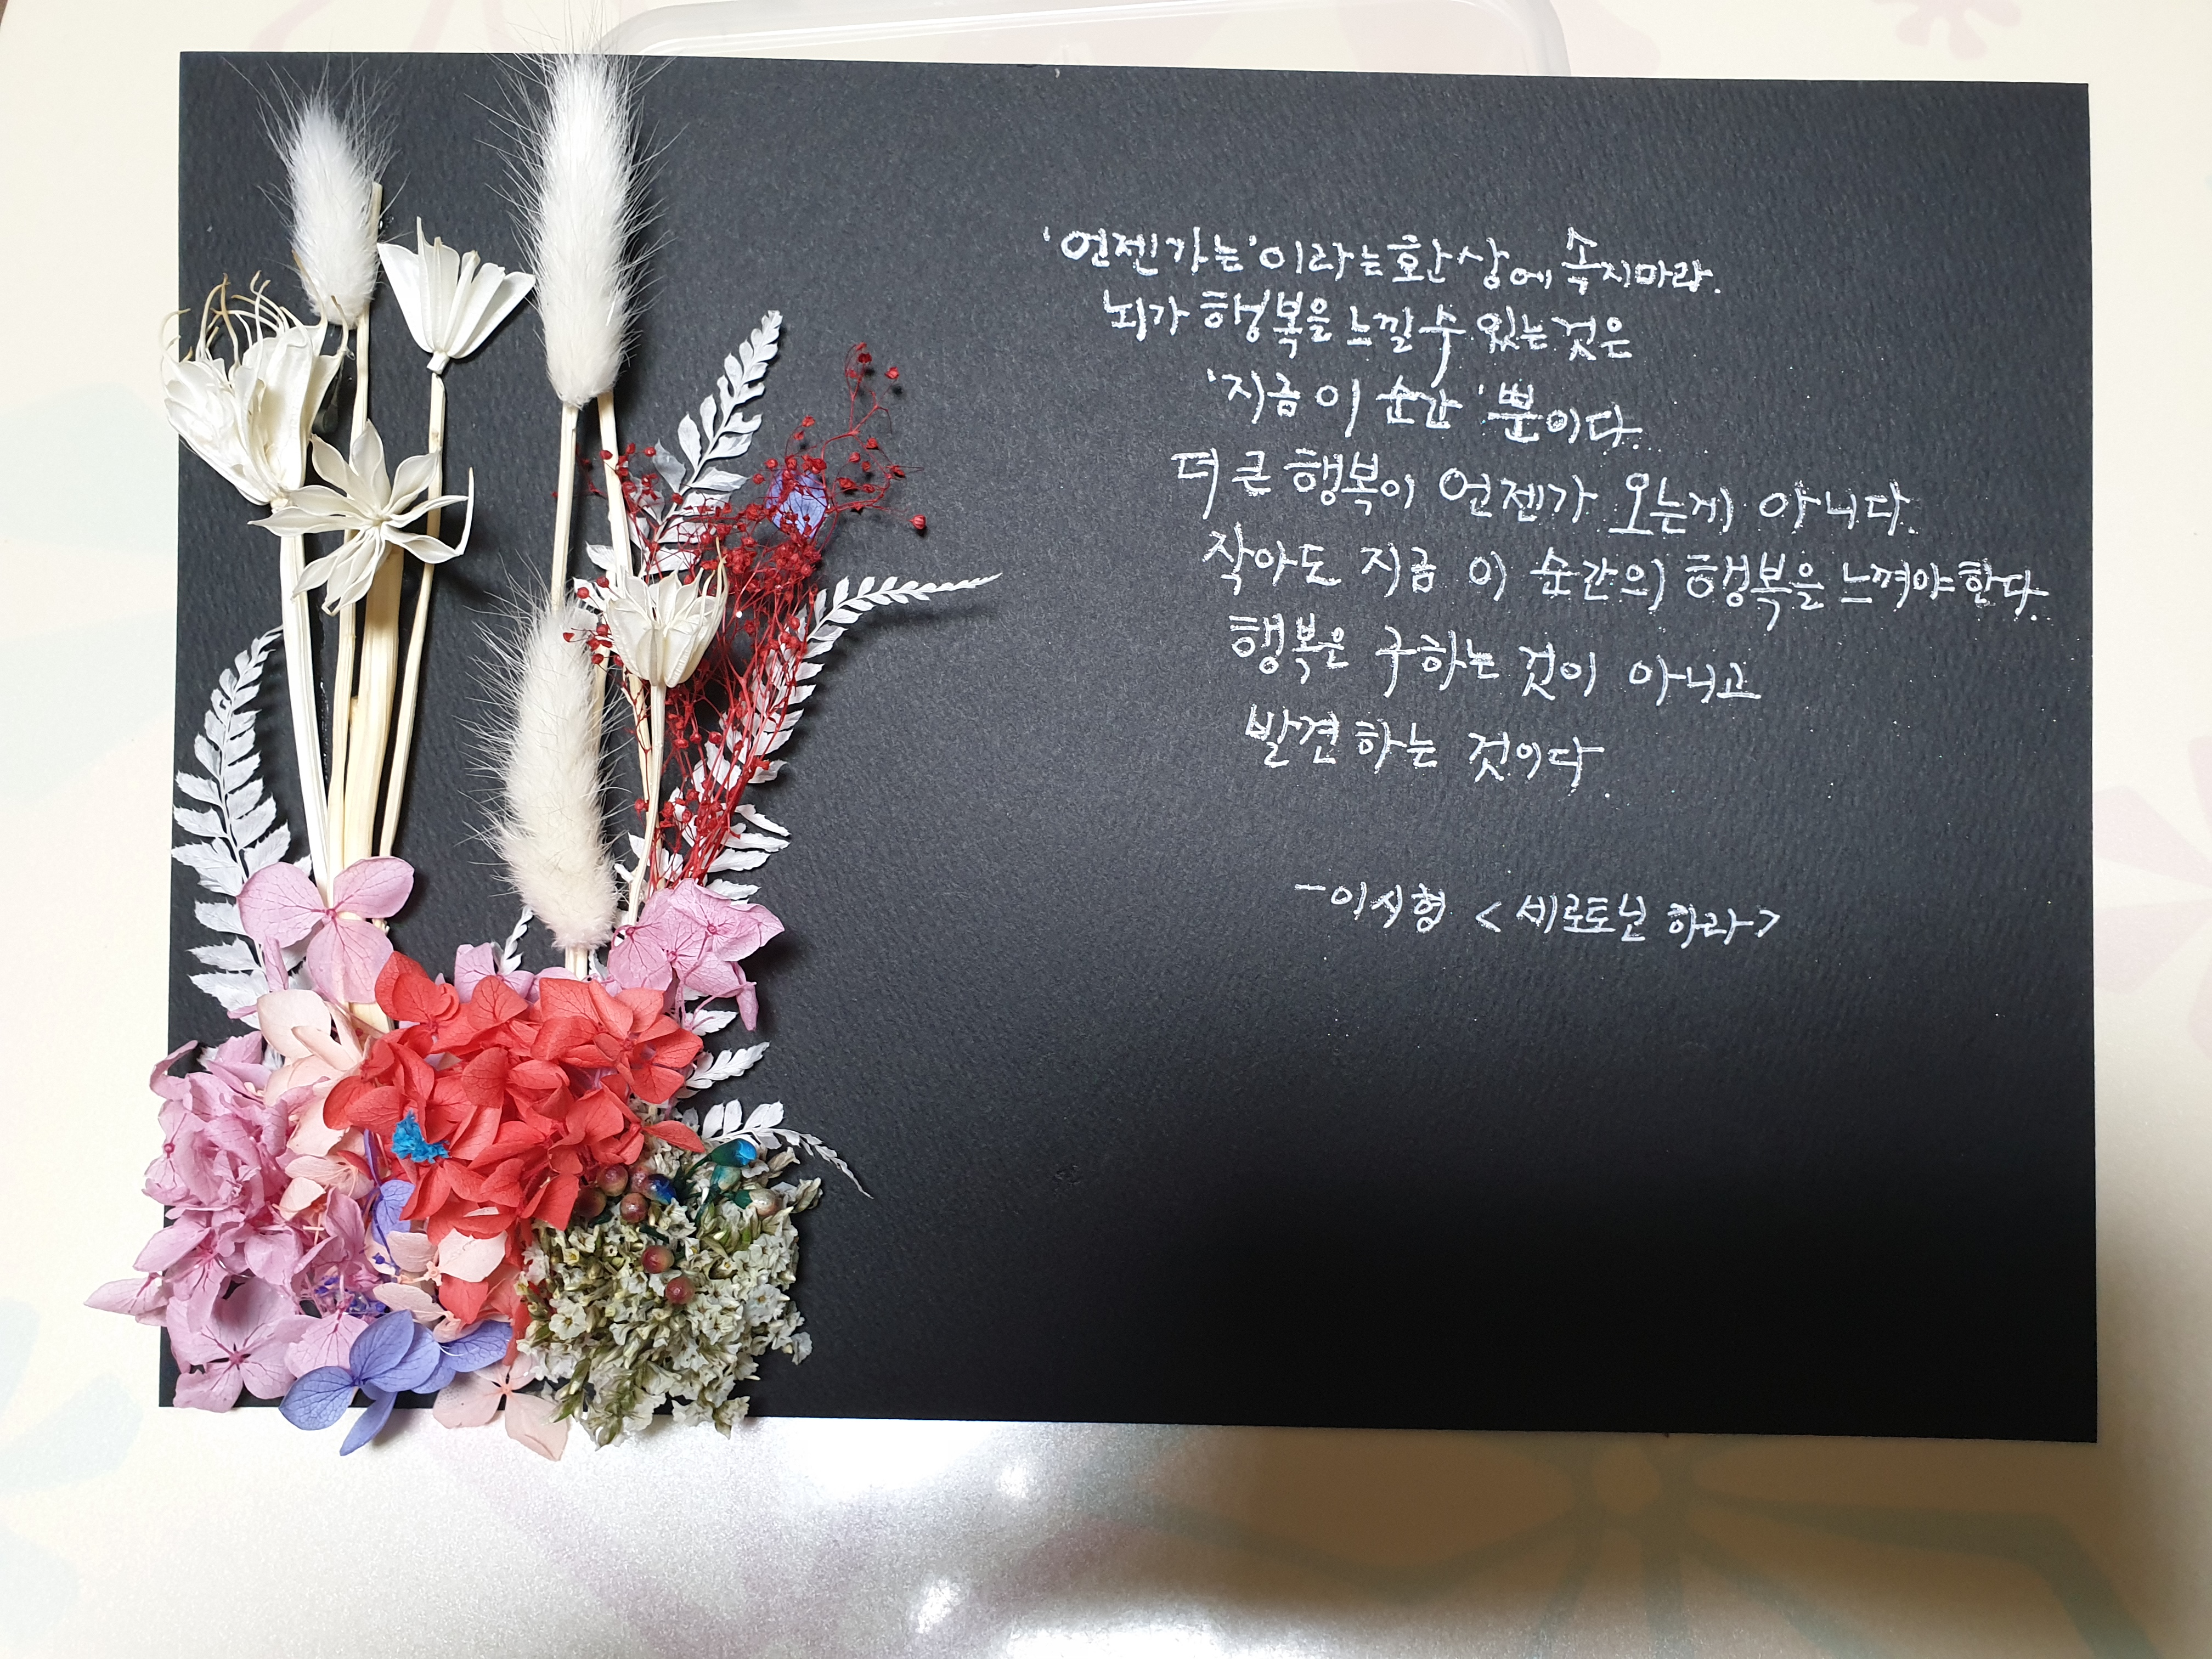 '언젠가는'이라는 환상에 속지마라.
뇌가 행복을 느낄 수 있는 것은
'지금 이 순간'뿐이다.
더 큰 행복이 언젠가 오는게 아니다.
작아도 지금 이 순간의 행복을 느껴야 한다.
행복은 구하는 것이 아니고
발견하는 것이다.
-이시형 <세로토닌 하라>